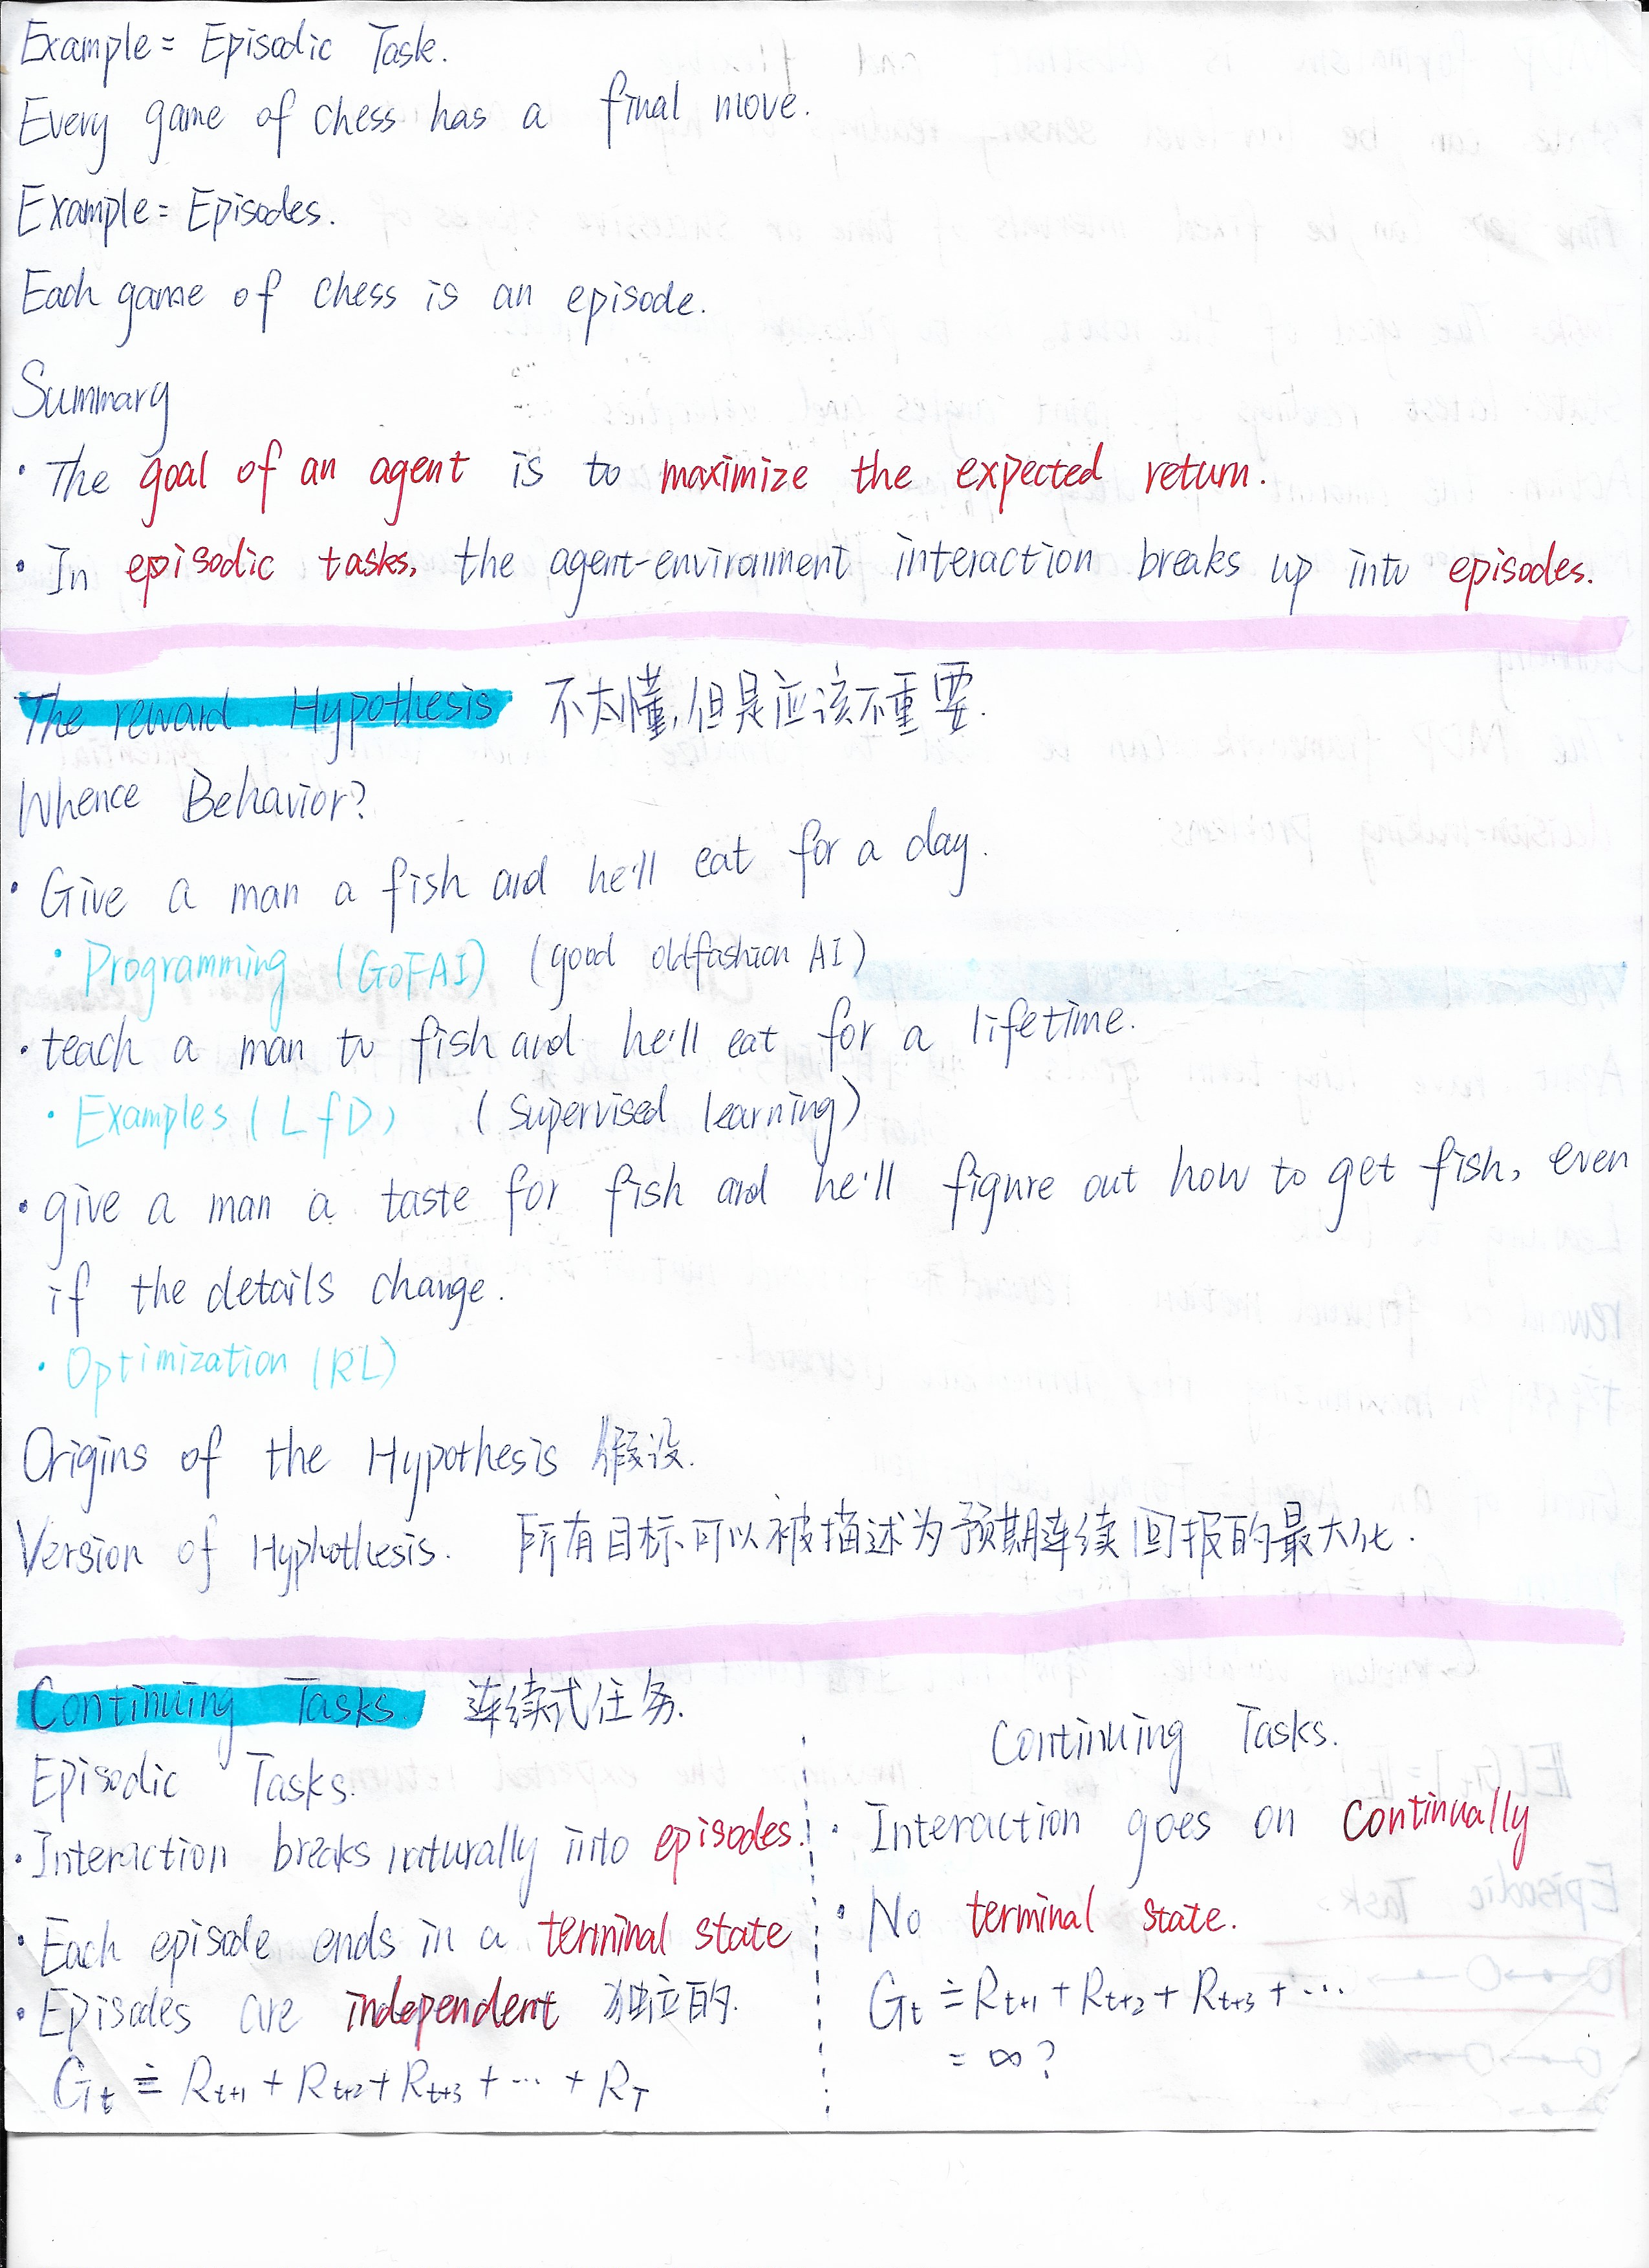 Example = Episodic Task.
Every game of chess has a final move.
Example = Episodes.
Each game of chess is an episode.
Summary
· The goal of an agent is to maximize the expected return.
· In episodic tasks, the agent-environment interaction breaks up into episodes.
The reward Hypothesis 不太懂,但是应该不重要.
Whence Behavior?
· Give a man a fish and he'll eat for a day.
· Programming (GOFAI) (good oldfashion AI)
· teach a man to fish and he'll eat for a lifetime.
· Examples (LfD) (Supervised learning)
· give a man a taste for fish and he'll figure out how to get fish, even
if the details change.
· Optimization (RL)
Origins of the Hypothesis 假设.
Version of Hyphothesis. 所有目标可以被描述为预期连续回报的最大化.
Continuing Tasks. 连续式任务.
Episodic Tasks.
· Interaction breaks naturally into episodes.
· Each episode ends in a terminal state
· Episodes are independent 独立的.
Gt ≐ Rt+1 + Rt+2 + Rt+3 + ··· + RT
Continuing Tasks.
· Interaction goes on continually
· No terminal state.
Gt ≐ Rt+1 + Rt+2 + Rt+3 + ···
= ∞ ?